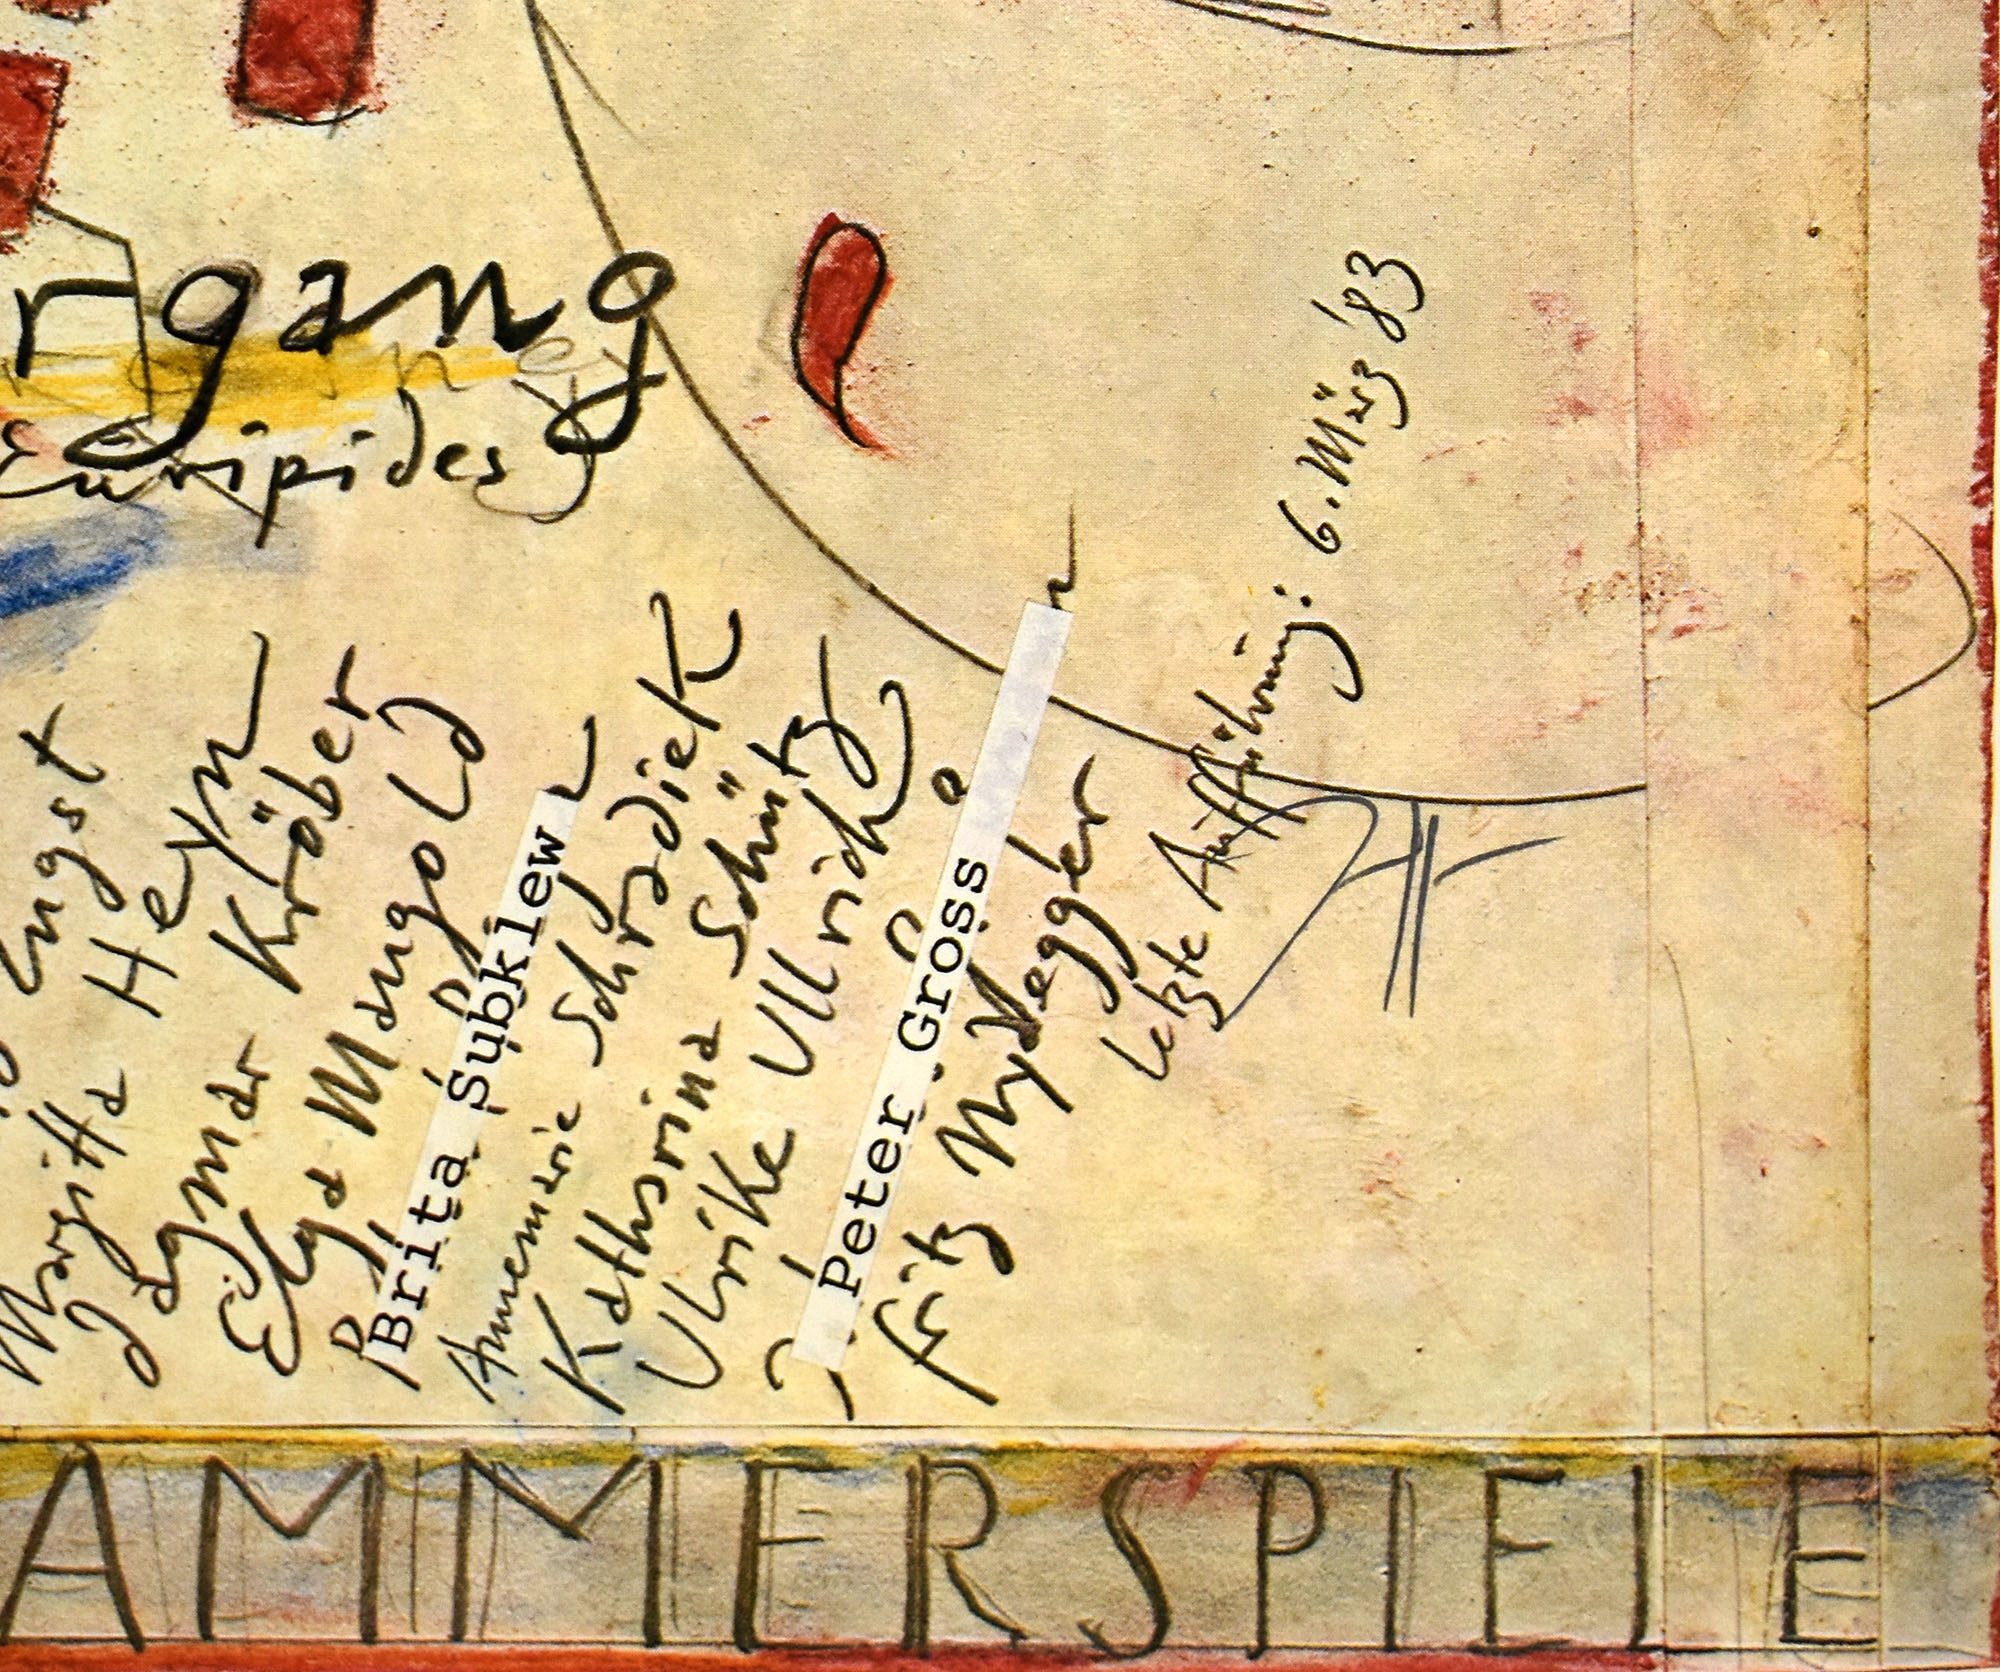 rgang
Euripides
Engst
Margitta Heyn
Dagmar Kröber
Elga Mangold
Brita Subklew
Annemarie Schradiek
Katharina Schütz
Ulrike Ullrich
Peter Gross
Fritz Nydegger
Letzte Aufführung: 6. März '83
AMMERSPIELE